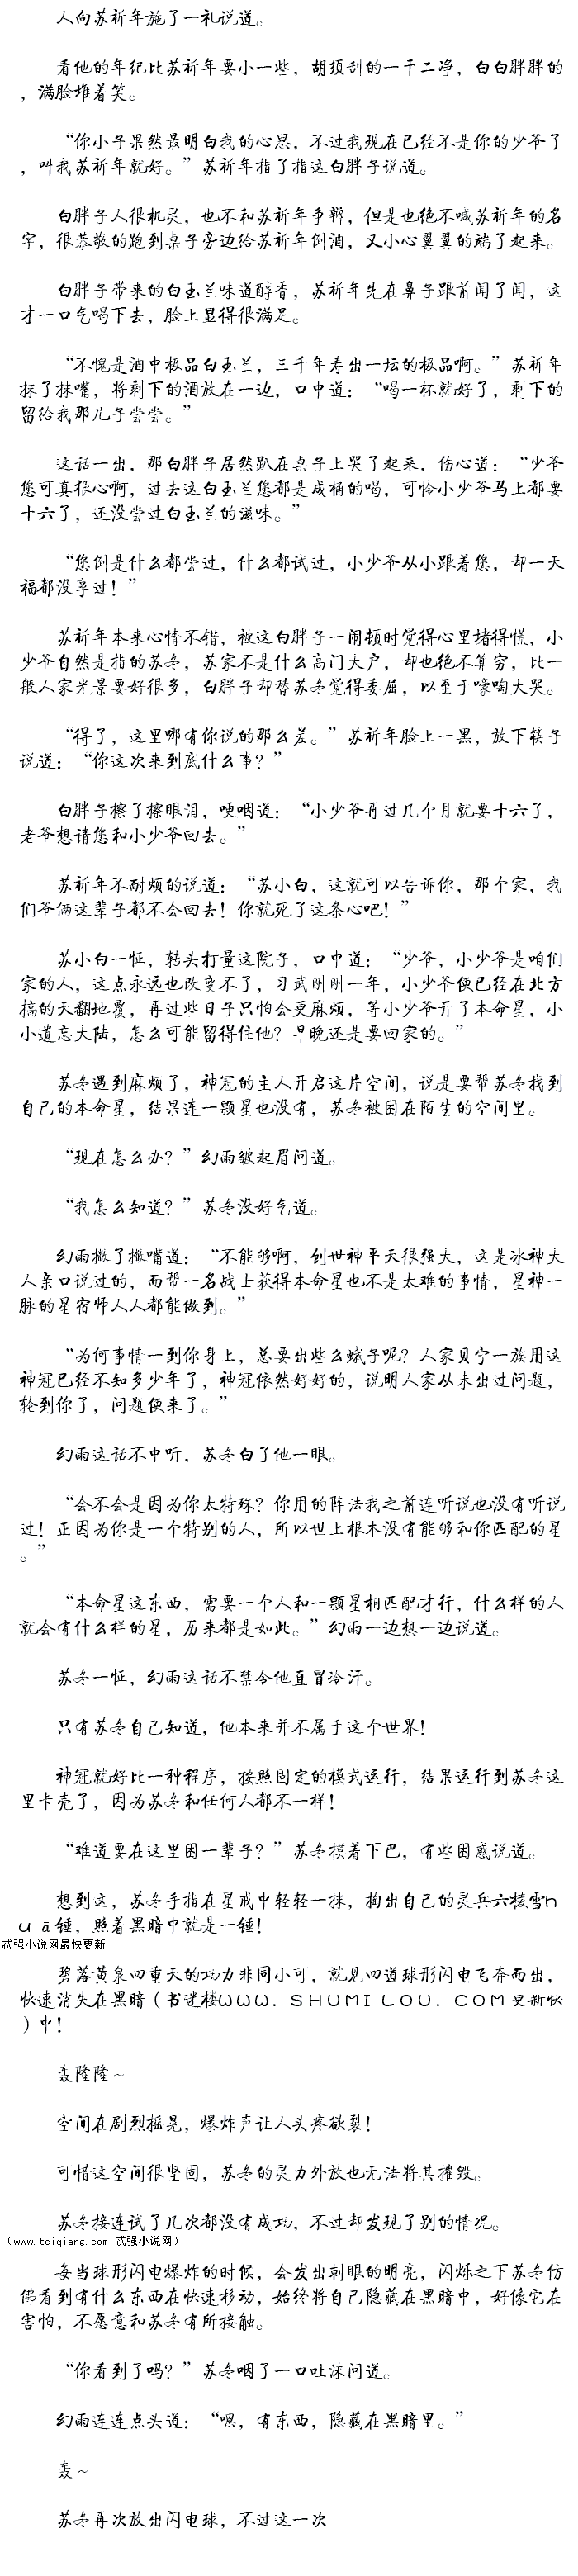 人向苏祈年施了一礼说道。
看他的年纪比苏祈年要小一些，胡须刮的一干二净，白白胖胖的
，满脸堆着笑。
“你小子果然最明白我的心思，不过我现在已经不是你的少爷了
，叫我苏祈年就好。”苏祈年指了指这白胖子说道。
白胖子人很机灵，也不和苏祈年争辩，但是也绝不喊苏祈年的名
字，很恭敬的跑到桌子旁边给苏祈年倒酒，又小心翼翼的端了起来。
白胖子带来的白玉兰味道醇香，苏祈年先在鼻子跟前闻了闻，这
才一口气喝下去，脸上显得很满足。
“不愧是酒中极品白玉兰，三千年寿出一坛的极品啊。”苏祈年
抹了抹嘴，将剩下的酒放在一边，口中道：“喝一杯就好了，剩下的
留给我那儿子尝尝。”
这话一出，那白胖子居然趴在桌子上哭了起来，伤心道：“少爷
您可真狠心啊，过去这白玉兰您都是成桶的喝，可怜小少爷马上都要
十六了，还没尝过白玉兰的滋味。”
“您倒是什么都尝过，什么都试过，小少爷从小跟着您，却一天
福都没享过！”
苏祈年本来心情不错，被这白胖子一闹顿时觉得心里堵得慌，小
少爷自然是指的苏冬，苏家不是什么高门大户，却也绝不算穷，比一
般人家光景要好很多，白胖子却替苏冬觉得委屈，以至于嚎啕大哭。
“得了，这里哪有你说的那么差。”苏祈年脸上一黑，放下筷子
说道：“你这次来到底什么事？”
白胖子擦了擦眼泪，哽咽道：“小少爷再过几个月就要十六了，
老爷想请您和小少爷回去。”
苏祈年不耐烦的说道：“苏小白，这就可以告诉你，那个家，我
们爷俩这辈子都不会回去！你就死了这条心吧！”
苏小白一怔，转头打量这院子，口中道：“少爷，小少爷是咱们
家的人，这点永远也改变不了，习武刚刚一年，小少爷便已经在北方
搞的天翻地覆，再过些日子只怕会更麻烦，等小少爷开了本命星，小
小遗忘大陆，怎么可能留得住他？早晚还是要回家的。”
苏冬遇到麻烦了，神冠的主人开启这片空间，说是要帮苏冬找到
自己的本命星，结果连一颗星也没有，苏冬被困在陌生的空间里。
“现在怎么办？”幻雨皱起眉问道。
“我怎么知道？”苏冬没好气道。
幻雨撇了撇嘴道：“不能够啊，创世神平天很强大，这是冰神大
人亲口说过的，而帮一名战士获得本命星也不是太难的事情，星神一
脉的星宿师人人都能做到。”
“为何事情一到你身上，总要出些么蛾子呢？人家贝宁一族用这
神冠已经不知多少年了，神冠依然好好的，说明人家从未出过问题，
轮到你了，问题便来了。”
幻雨这话不中听，苏冬白了他一眼。
“会不会是因为你太特殊？你用的阵法我之前连听说也没有听说
过！正因为你是一个特别的人，所以世上根本没有能够和你匹配的星
。”
“本命星这东西，需要一个人和一颗星相匹配才行，什么样的人
就会有什么样的星，历来都是如此。”幻雨一边想一边说道。
苏冬一怔，幻雨这话不禁令他直冒冷汗。
只有苏冬自己知道，他本来并不属于这个世界！
神冠就好比一种程序，按照固定的模式运行，结果运行到苏冬这
里卡壳了，因为苏冬和任何人都不一样！
“难道要在这里困一辈子？”苏冬摸着下巴，有些困惑说道。
想到这，苏冬手指在星戒中轻轻一抹，掏出自己的灵兵六棱雪h
uā锤，照着黑暗中就是一锤！
忒强小说网最快更新
碧落黄泉四重天的功力非同小可，就见四道球形闪电飞奔而出，
快速消失在黑暗（书迷楼WWW．SHUMILOU．COM更新快
）中！
轰隆隆～
空间在剧烈摇晃，爆炸声让人头疼欲裂！
可惜这空间很坚固，苏冬的灵力外放也无法将其摧毁。
苏冬接连试了几次都没有成功，不过却发现了别的情况。
（www.teiqiang.com 忒强小说网）
每当球形闪电爆炸的时候，会发出刺眼的明亮，闪烁之下苏冬仿
佛看到有什么东西在快速移动，始终将自己隐藏在黑暗中，好像它在
害怕，不愿意和苏冬有所接触。
“你看到了吗？”苏冬咽了一口吐沫问道。
幻雨连连点头道：“嗯，有东西，隐藏在黑暗里。”
轰～
苏冬再次放出闪电球，不过这一次